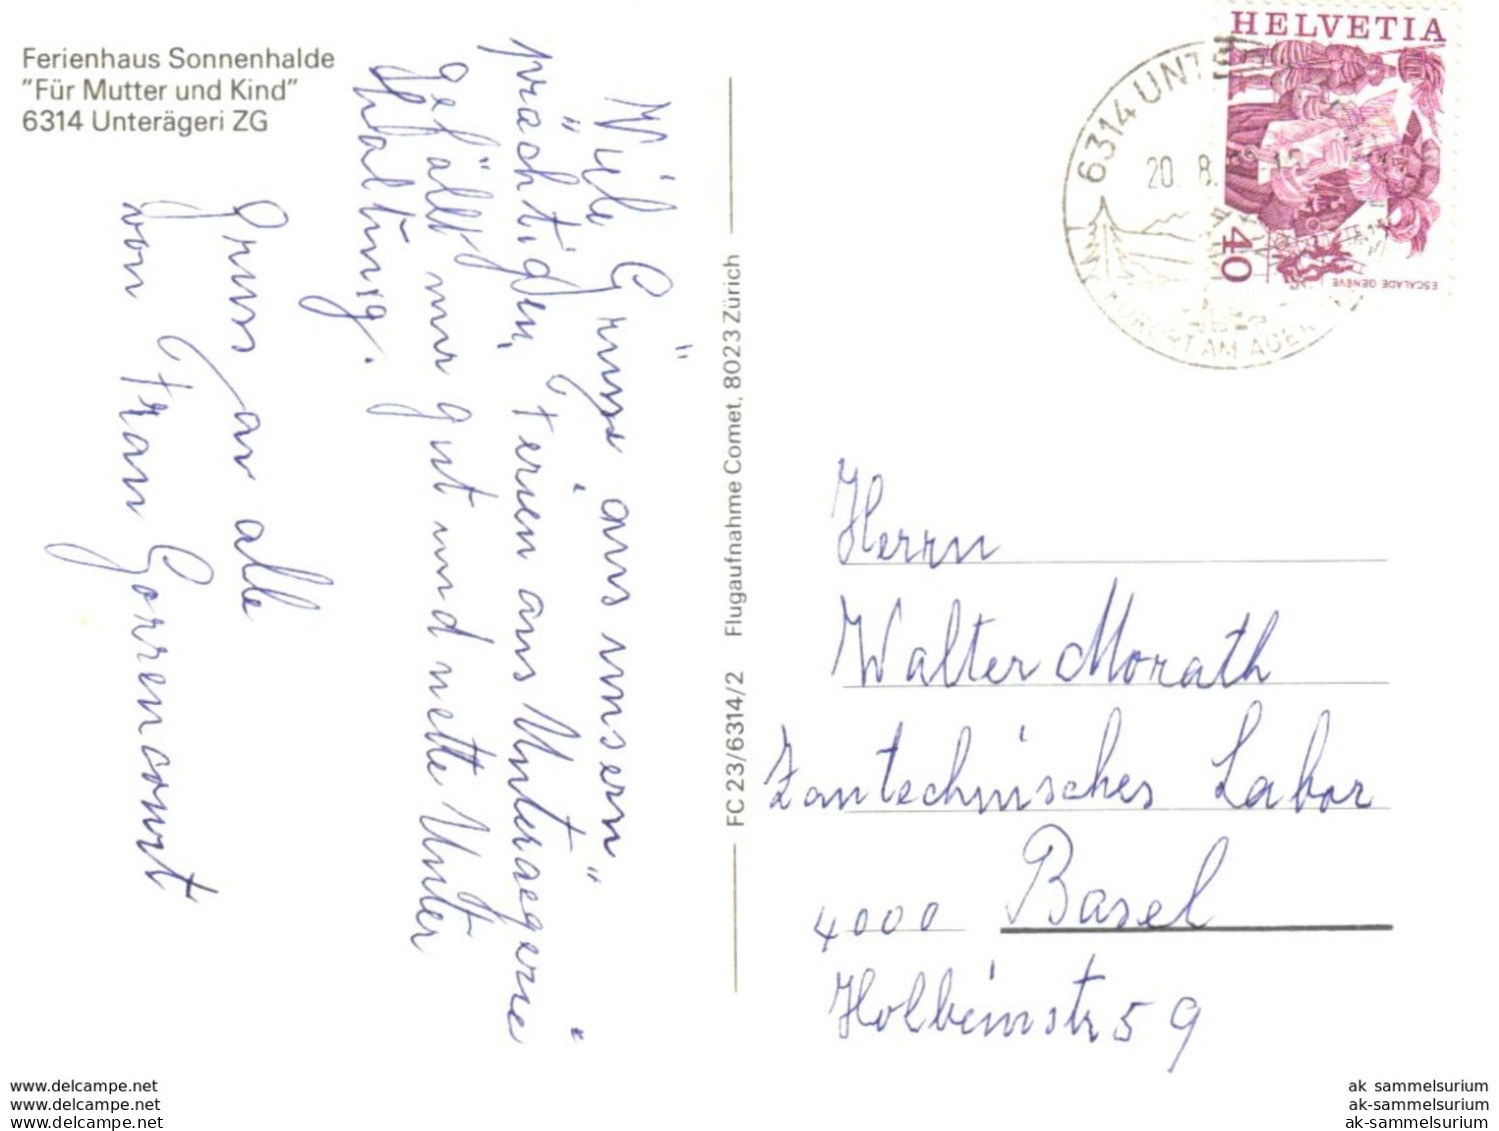 Ferienhaus Sonnenhalde
"Für Mutter und Kind"
6314 Unterägeri ZG
Viele Grüsse aus unsern
prächtigen Ferien aus Unteraegerie
gefällt mir gut und nette Unter
haltung.
Gruss an alle
von Frau Gorrencourt
FC 23/6314/2 Flugaufnahme Comet, 8023 Zürich
HELVETIA
40
ESCALADE GENÈVE
6314 UNT
20. 8.
KURORT AM
Herrn
Walter Morath
Zantechnisches Labor
4000 Basel
Holbeinstr 59
www.delcampe.net
www.delcampe.net
www.delcampe.net
ak sammelsurium
ak-sammelsurium
ak-sammelsurium